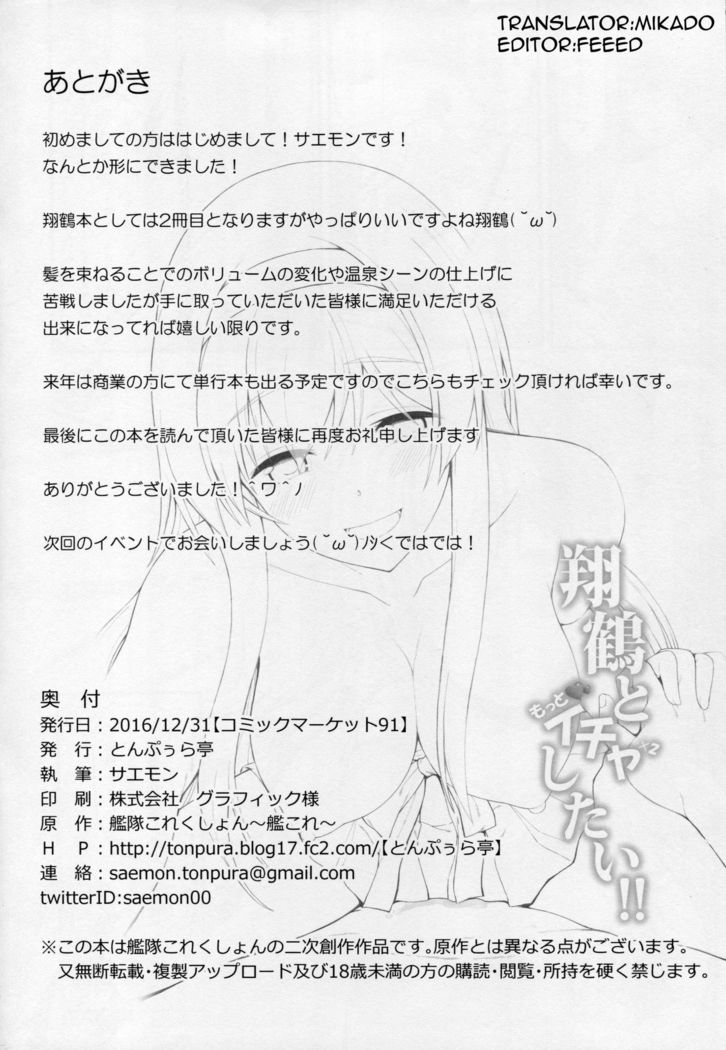 TRANSLATOR:MIKADO
EDITOR:FEEED
あとがき
初めましての方ははじめまして！サエモンです！
なんとか形にできました！
翔鶴本としては2冊目となりますがやっぱりいいですよね翔鶴(˘ω˘)
髪を束ねることでのボリュームの変化や温泉シーンの仕上げに
苦戦しましたが手に取っていただいた皆様に満足いただける
出来になってれば嬉しい限りです。
来年は商業の方にて単行本も出る予定ですのでこちらもチェック頂ければ幸いです。
最後にこの本を読んで頂いた皆様に再度お礼申し上げます
ありがとうございました！＾ワ＾ノ
次回のイベントでお会いしましょう(˘ω˘)ﾉｼくではでは！
翔鶴と
もっと
イチャ×2
したい!!
奥　付
発行日：2016/12/31【コミックマーケット91】
発　行：とんぷぅら亭
執　筆：サエモン
印　刷：株式会社　グラフィック様
原　作：艦隊これくしょん～艦これ～
Ｈ　Ｐ：http://tonpura.blog17.fc2.com/【とんぷぅら亭】
連　絡：saemon.tonpura@gmail.com
twitterID:saemon00
※この本は艦隊これくしょんの二次創作作品です。原作とは異なる点がございます。
又無断転載・複製アップロード及び18歳未満の方の購読・閲覧・所持を硬く禁じます。